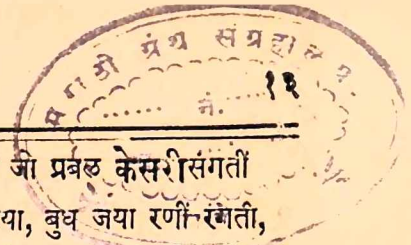 मराठी ग्रंथ संग्रहालय
नं. १३
जी प्रबल केसरीसंगतीं
या, बुध जया रणीं रंगती,